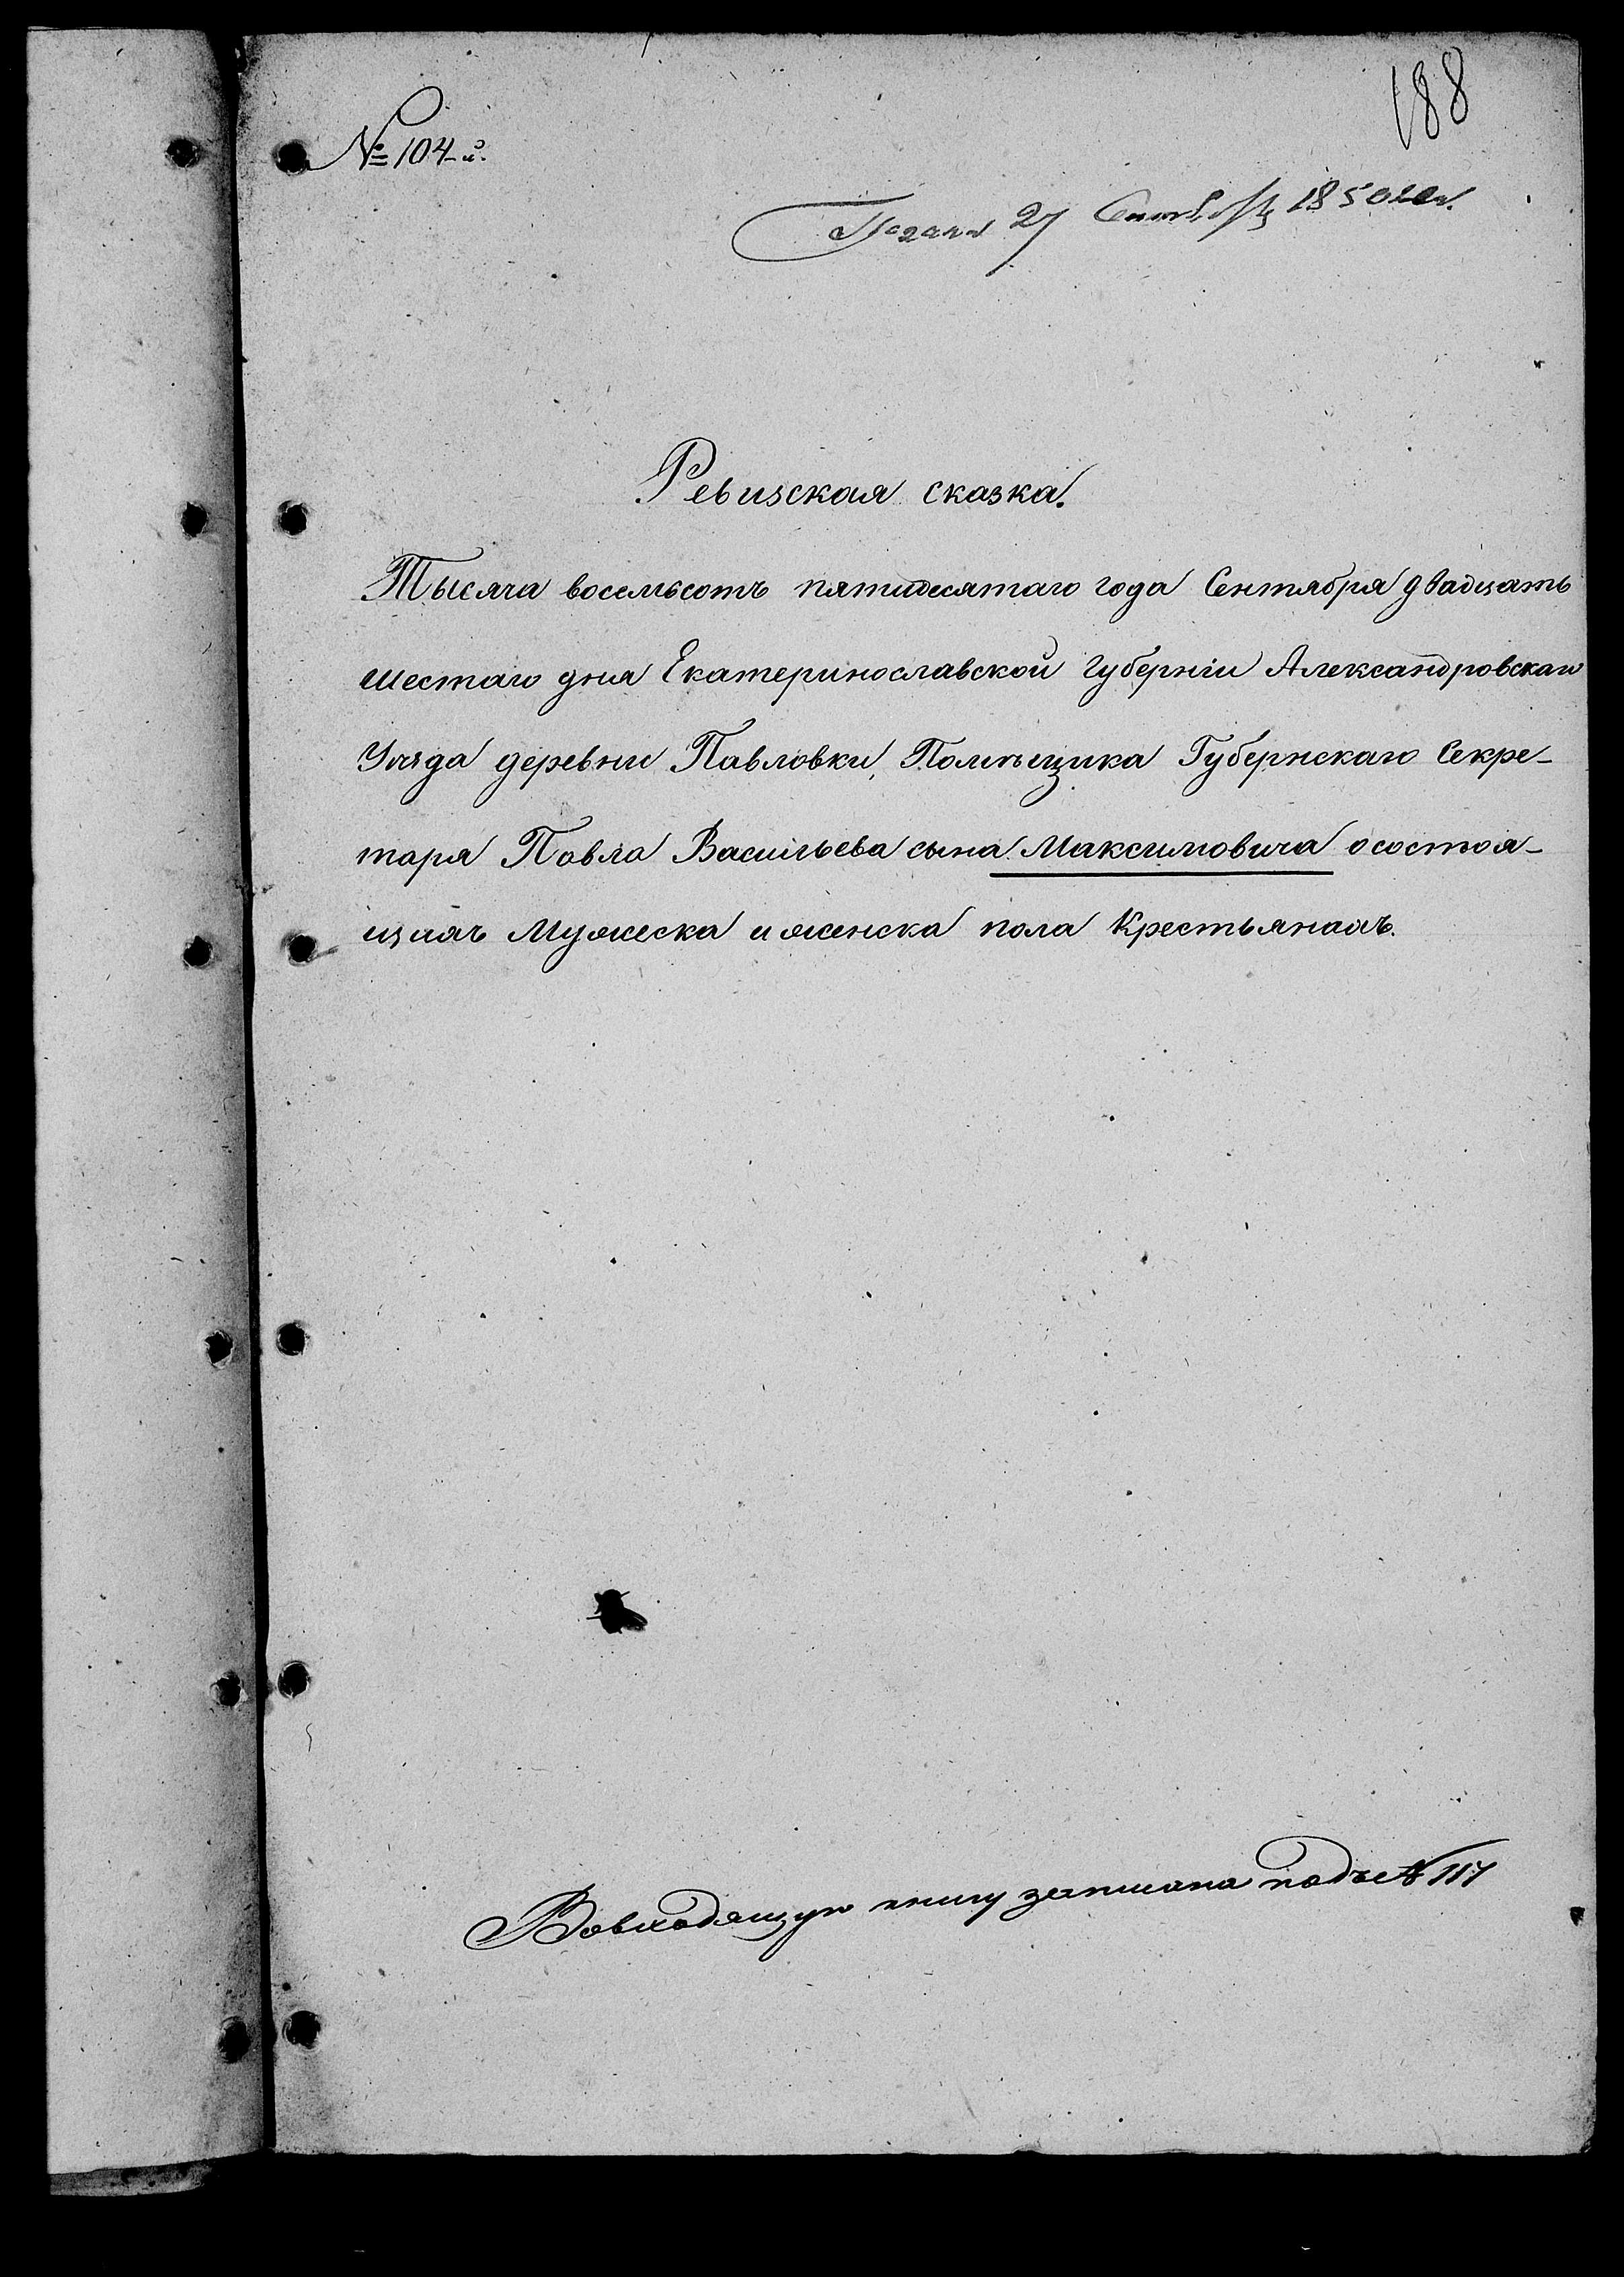 188
№ 104-й.
Подана 27 Сентября 1850 года.
Ревизская сказка.
Тысяча восемьсотъ пятидесятаго года Сентября двадцать
шестаго дня Екатеринославской губерніи Александровскаго
Уѣзда деревни Павловки, Помѣщика Губернскаго Секре-
таря Павла Васильева сына Максимовича о состоя-
щихъ Мужеска и женска пола Крестьянахъ.
Вовходящую книгу записана подъ № 117